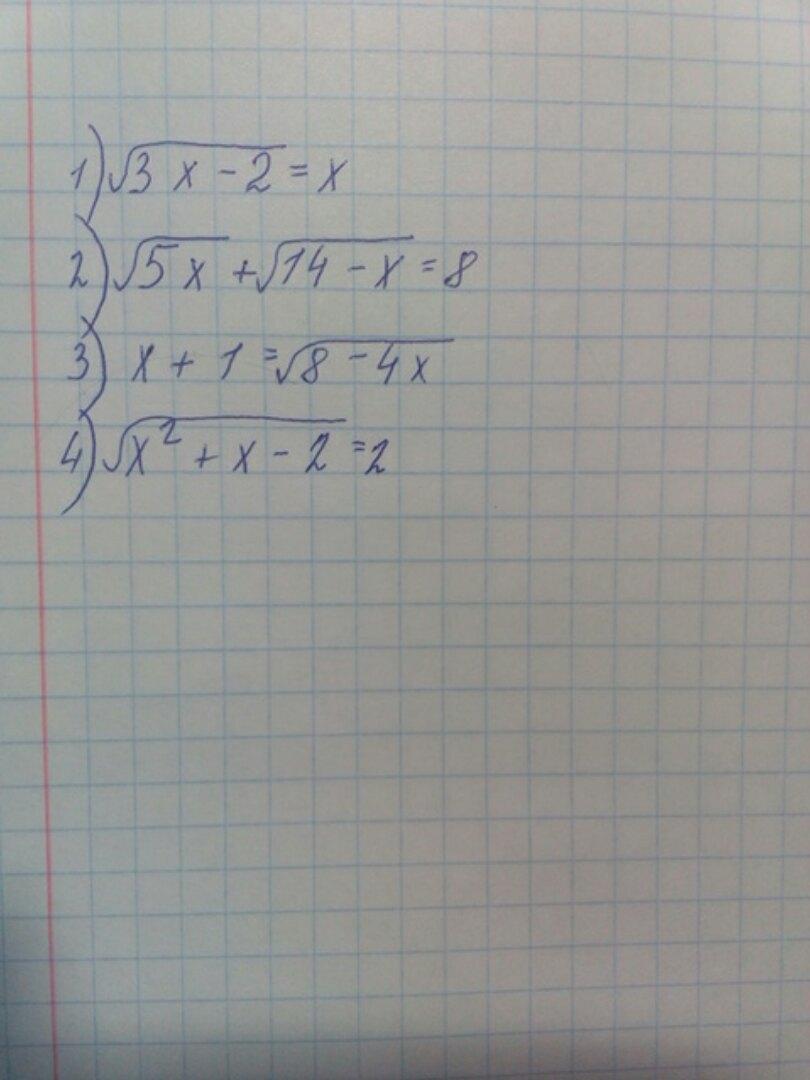 1) √3x - 2 = x
2) √5x + √14 - x = 8
3) x + 1 = √8 - 4x
4) √x² + x - 2 = 2